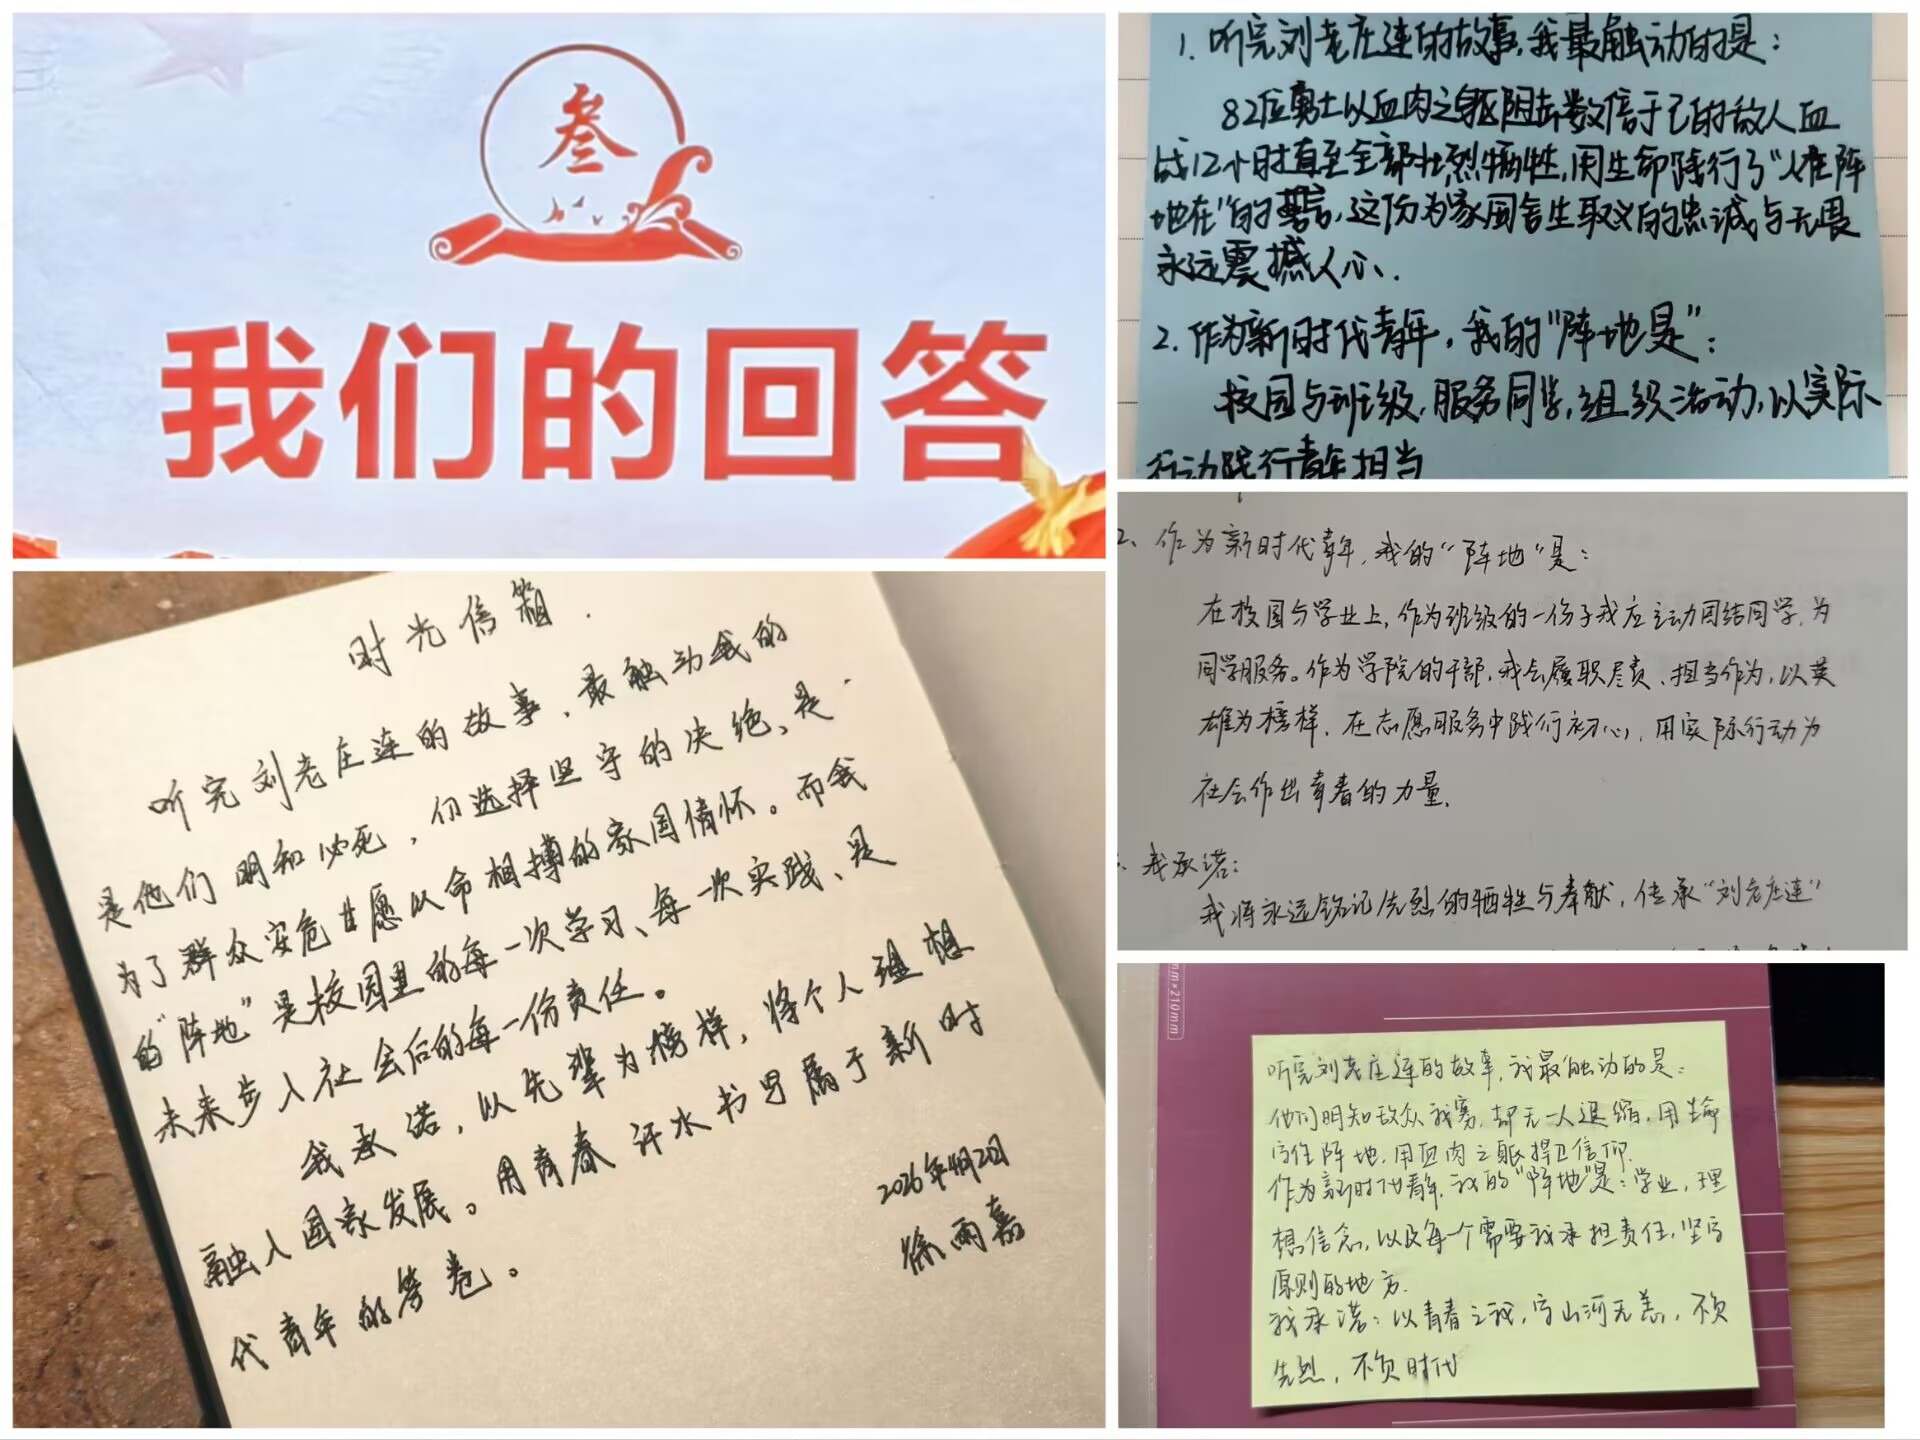 叁
我们的回答
时光信箱.
听完刘老庄连的故事、最触动我的
是他们明知必死，仍选择坚守的决绝、是
为了群众安危甘愿以命相搏的家国情怀。而我
的“阵地”是校园里的每一次学习、每一次实践、是
未来步入社会后的每一份责任。
我承诺，以先辈为榜样，将个人理想
融入国家发展。用青春汗水书写属于新时
代青年的答卷。
2026年4月2日
徐雨嘉
1. 听完刘老庄连的故事,我最触动的是：
82位勇士以血肉之躯阻击数倍于己的敌人血
战12小时直至全部壮烈牺牲,用生命践行了“人在阵
地在”的誓言,这份为家国舍生取义的忠诚与无畏
永远震撼人心.
2. 作为新时代青年，我的“阵地是”：
校园与班级,服务同学,组织活动,以实际
行动践行青年担当
2、作为新时代青年,我的“阵地”是：
在校园与学业上,作为班级的一份子我应主动团结同学,为
同学服务。作为学院的干部,我会履职尽责、担当作为,以英
雄为榜样,在志愿服务中践行初心,用实际行动为
社会作出青春的力量.
我承诺：
我将永远铭记先烈的牺牲与奉献，传承“刘老庄连”
mm×210mm
听完刘老庄连的故事,我最触动的是：
他们明知敌众我寡,却无一人退缩,用生命
守住阵地,用血肉之躯捍卫信仰.
作为新时代青年,我的“阵地”是：学业,理
想信念,以及每一个需要我承担责任,坚守
原则的地方.
我承诺：以青春之我,守山河无恙，不负
先烈，不负时代